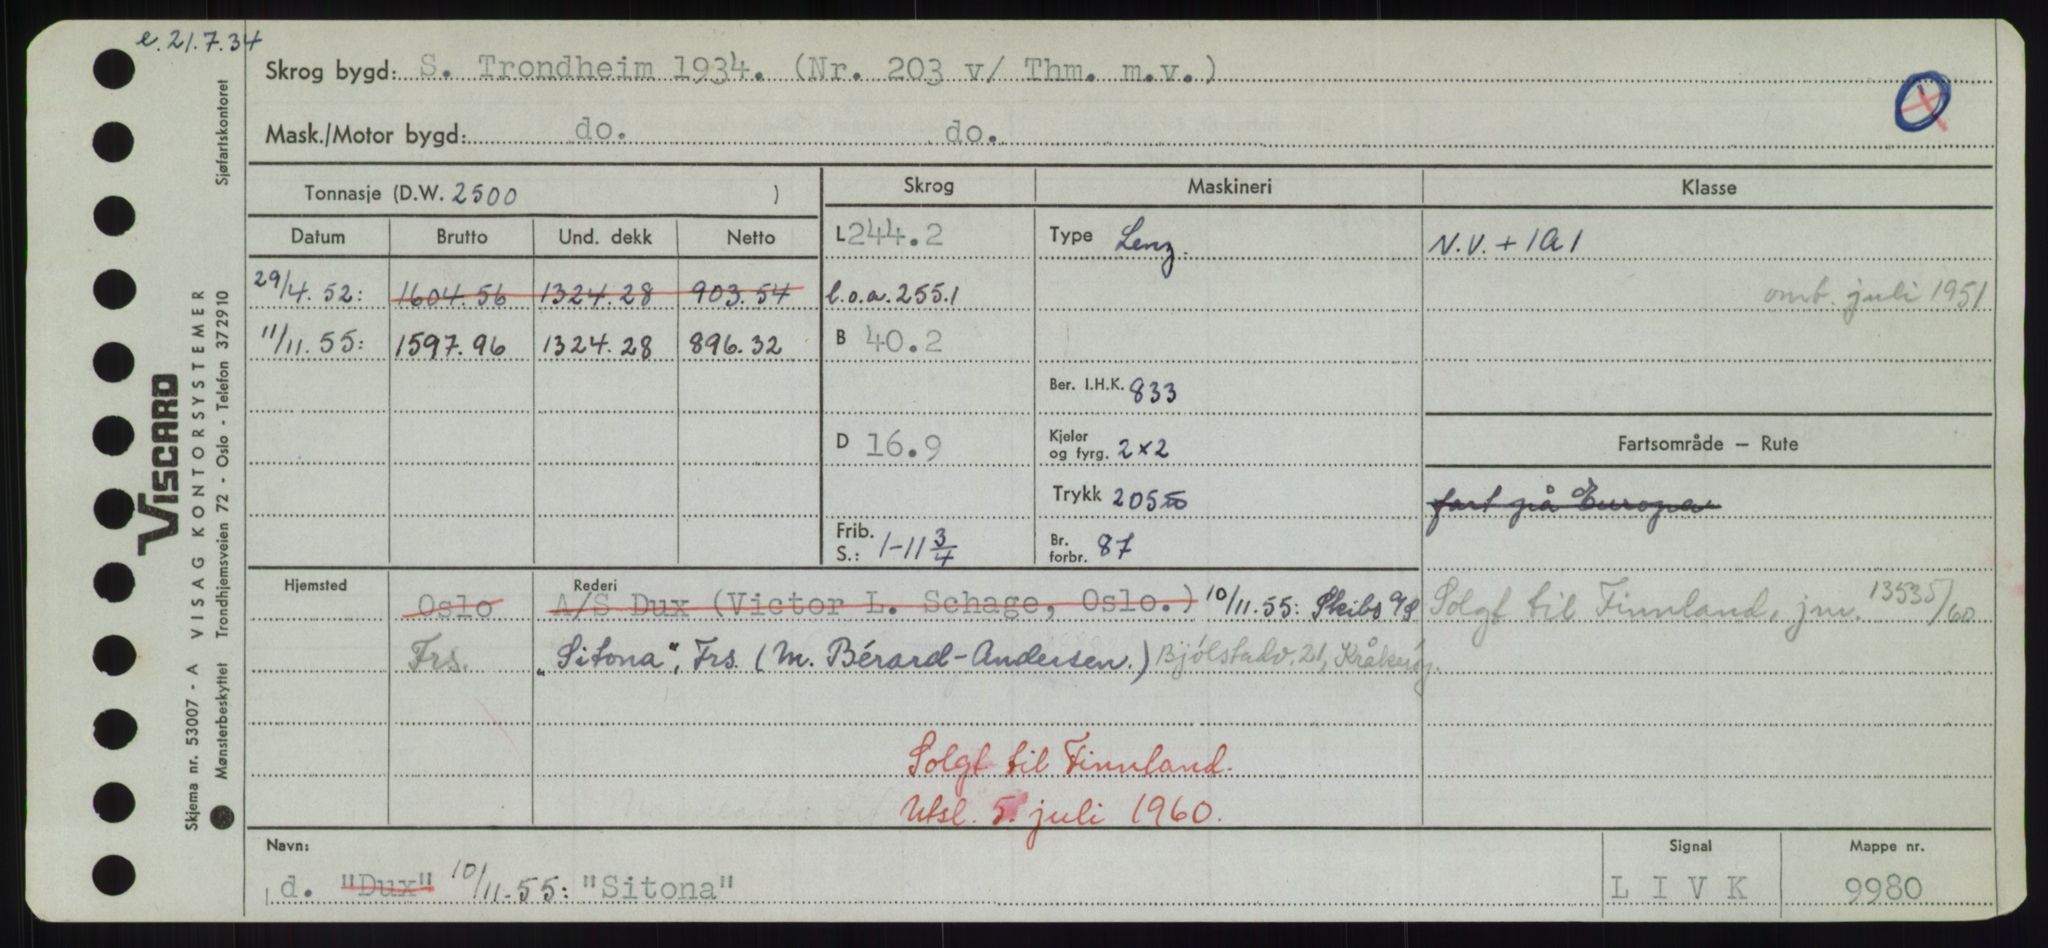 e. 21.7.34
Skrog bygd: S. Trondheim 1934. (Nr. 203 v/ Thm. m.v.)
Mask./Motor bygd: do. do.
Tonnasje (D.W. 2500 )
Skrog Maskineri Klasse
Datum Brutto Und. dekk Netto
L 244.2 Type Lenz. N.V. + 1A1
29/4. 52: 1604.56 1324.28 903.54 l.o.a. 255.1 omb. juli 1951
11/11. 55: 1597.96 1324.28 896.32 B 40.2
Ber. I.H.K. 833
D 16.9 Kjeler og fyrg. 2x2 Fartsområde – Rute
Trykk 205 fart på Europa
Frib. S.: 1-11 3/4 Br. forbr. 87
Hjemsted Rederi
Oslo A/S Dux (Victor L. Schage, Oslo.) 10/11.55: Skibs A/S Solgt til Finnland, jnr. 13535/60
Frs. "Sitona", Frs. (M. Bérard-Andersen.) Bjólstadv. 21, Kråkerøy.
Solgt til Finnland.
Utsl. 5. juli 1960.
Navn: Signal Mappe nr.
d. "Dux" 10/11-55: "Sitona" L I V K 9980
VISCARD
Skjema nr. 53007 - A VISAG KONTORSYSTEMER
Mønsterbeskyttet Trondhjemsveien 72 - Oslo - Telefon 372910 Sjøfartskontoret